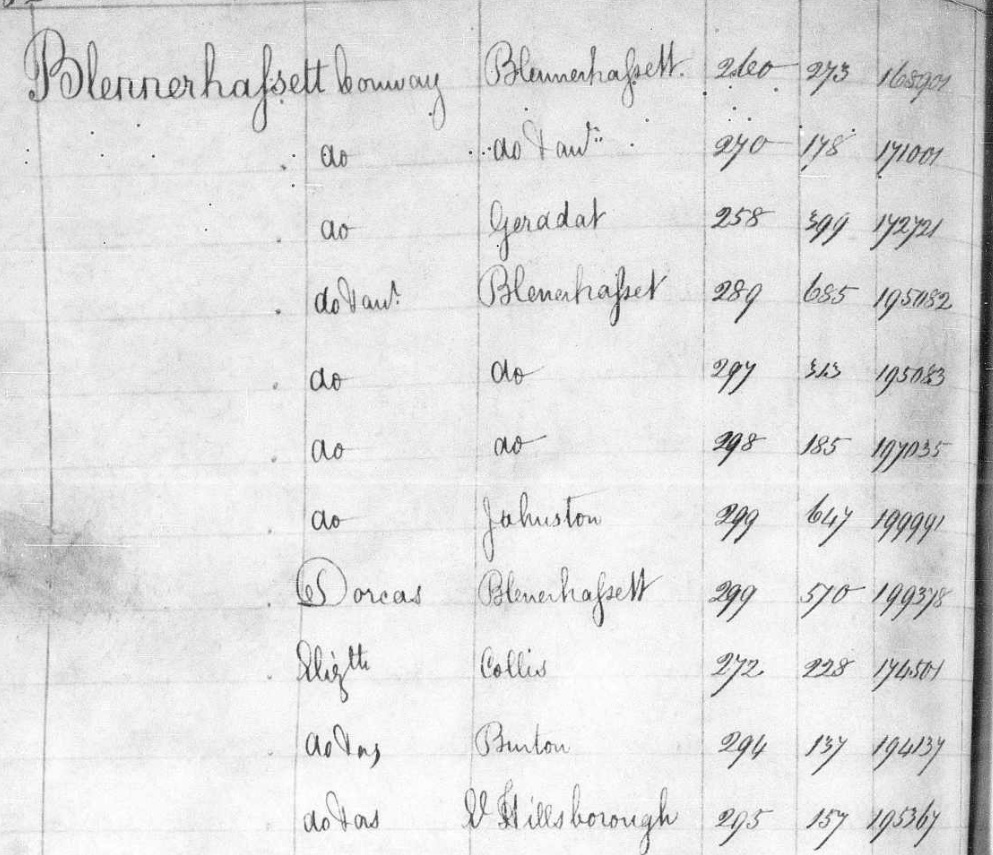 Blennerhassett Conway Blennerhassett. 260 273 168901
do do & anr 270 178 171001
do Geradat 258 399 172721
do & anr Blenerhasset 289 685 195082
do do 297 313 195083
do do 298 185 197035
do Johnston 299 647 199991
Dorcas Blenerhassett 299 570 199378
Elizth Collis 272 228 174501
do Burton 294 137 194137
do V Hillsborough 295 157 195367